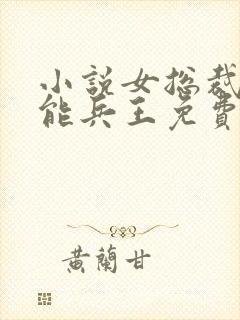 小說女總裁
能兵王免費
黃蘭甘